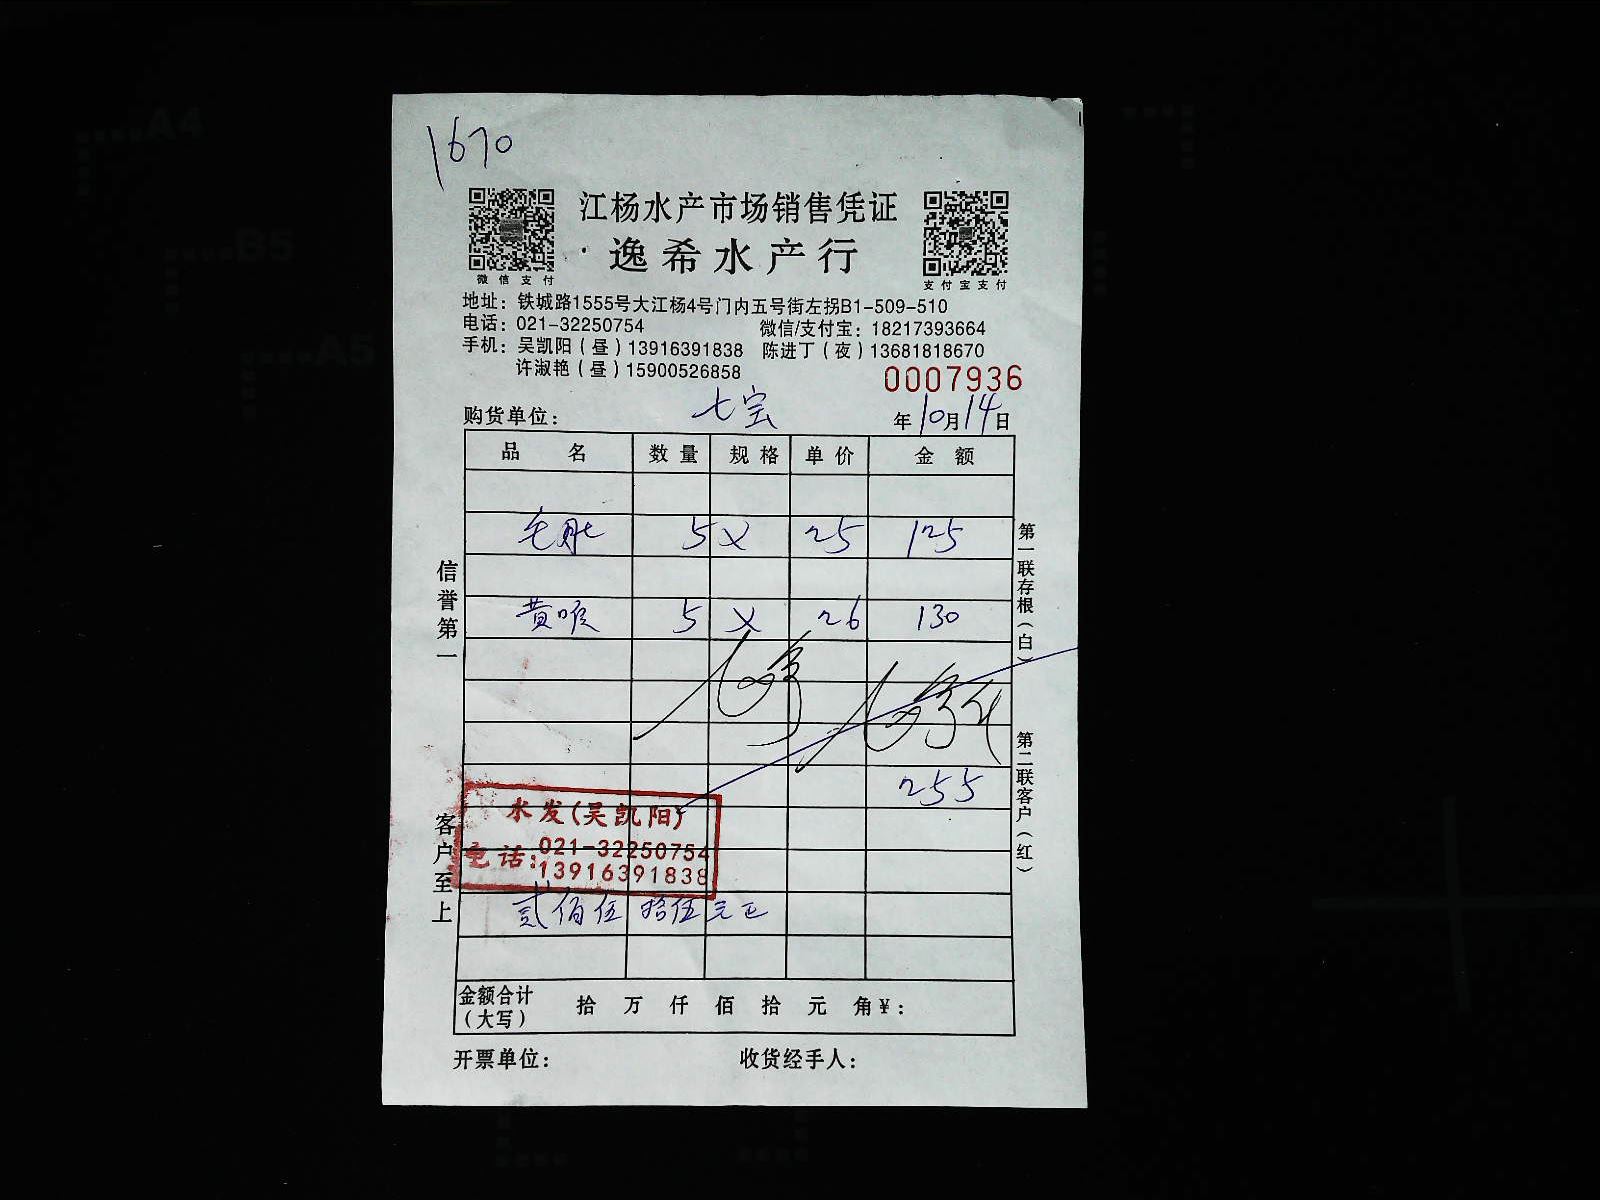 1670
江杨水产市场销售凭证
逸希水产行
微信支付
支付宝支付
地址：铁城路1555号大江杨4号门内五号街左拐B1-509-510
电话：021-32250754 微信/支付宝：18217393664
手机：吴凯阳（昼）13916391838 陈进丁（夜）13681818670
许淑艳（昼）15900526858
0007936
购货单位： 七宝 年10月14日
品名 数量 规格 单价 金额
毛肚 5 × 25 125
黄喉 5 × 26 130
255
水发(吴凯阳)
电话：021-32250754
13916391838
贰佰伍拾伍元正
金额合计（大写） 拾 万 仟 佰 拾 元 角 ¥：
开票单位： 收货经手人：
信誉第一
客户至上
第一联存根（白）
第二联客户（红）